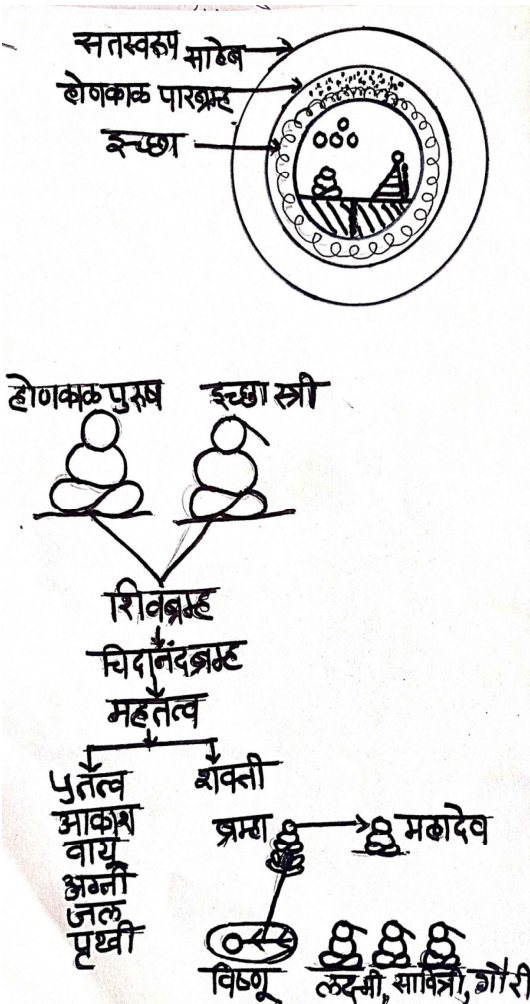 सतस्वरूप साहेब
होणकाळ पारब्रम्ह
इच्छा
होणकाळ पुरूष इच्छा स्त्री
शिवब्रम्ह
चिदानंदब्रम्ह
महतत्व
५तत्व शक्ती
आकाश
वायू
अग्नी
जल
पृथ्वी
ब्रम्हा महादेव
विष्णू लक्ष्मी, सावित्री, गौरी